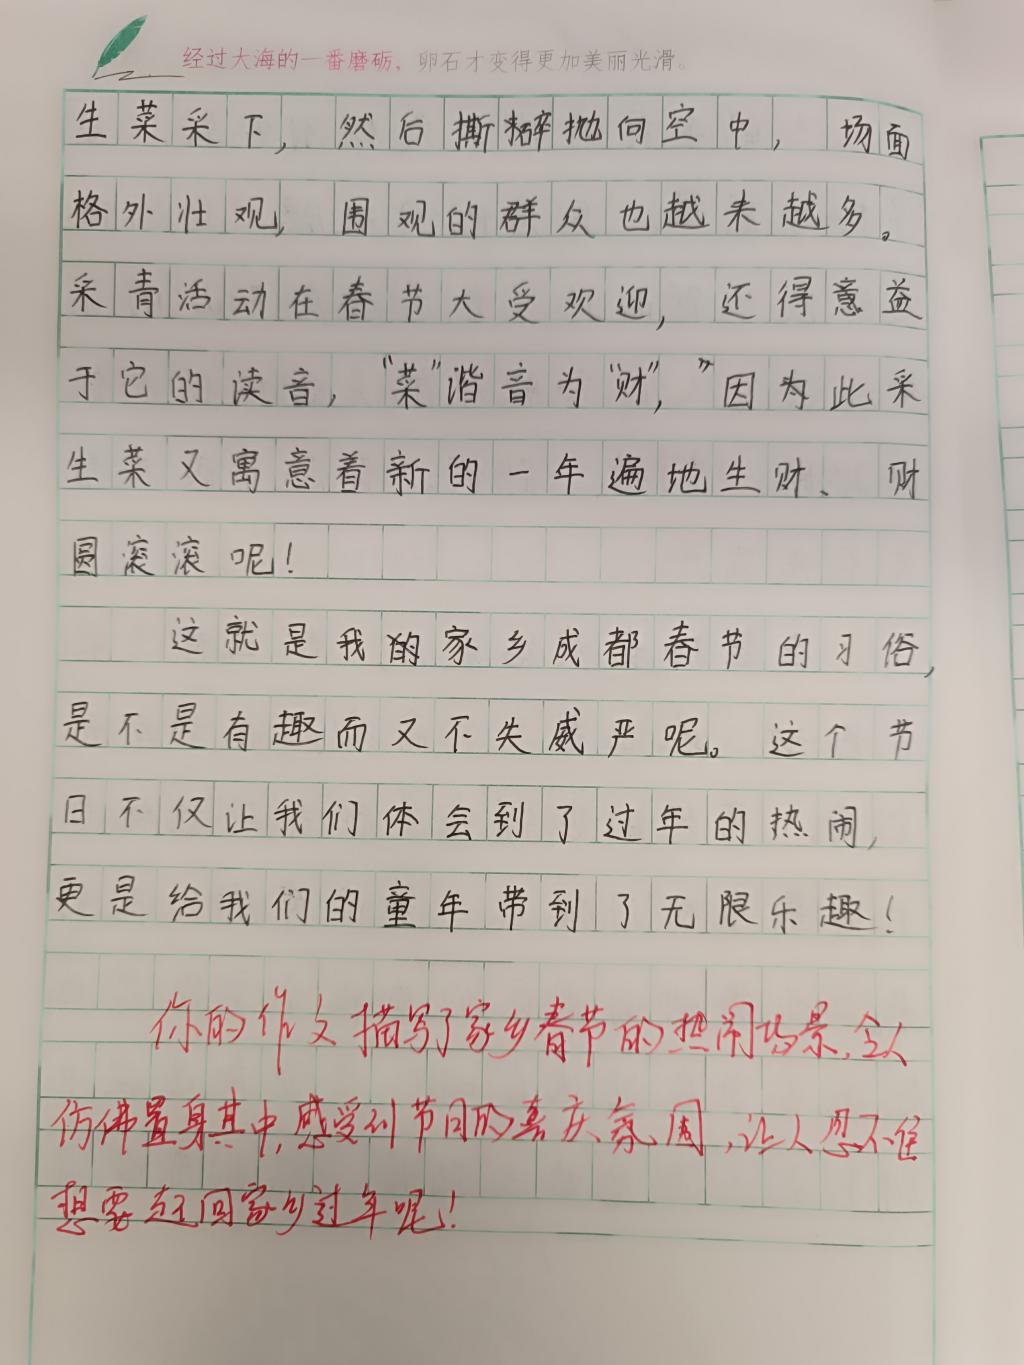 经过大海的一番磨砺，卵石才变得更加美丽光滑。
生菜采下，然后撕碎抛向空中，场面
格外壮观，围观的群众也越来越多。
采青活动在春节大受欢迎，还得意益
于它的读音，“菜”谐音为“财”，”因为此采
生菜又寓意着新的一年遍地生财、财
圆滚滚呢！
这就是我的家乡成都春节的习俗，
是不是有趣而又不失威严呢。这个节
日不仅让我们体会到了过年的热闹，
更是给我们的童年带到了无限乐趣！
你的作文描写了家乡春节的热闹场景，令人
仿佛置身其中，感受到节日的喜庆氛围，让人忍不住
想要赶回家乡过年呢！